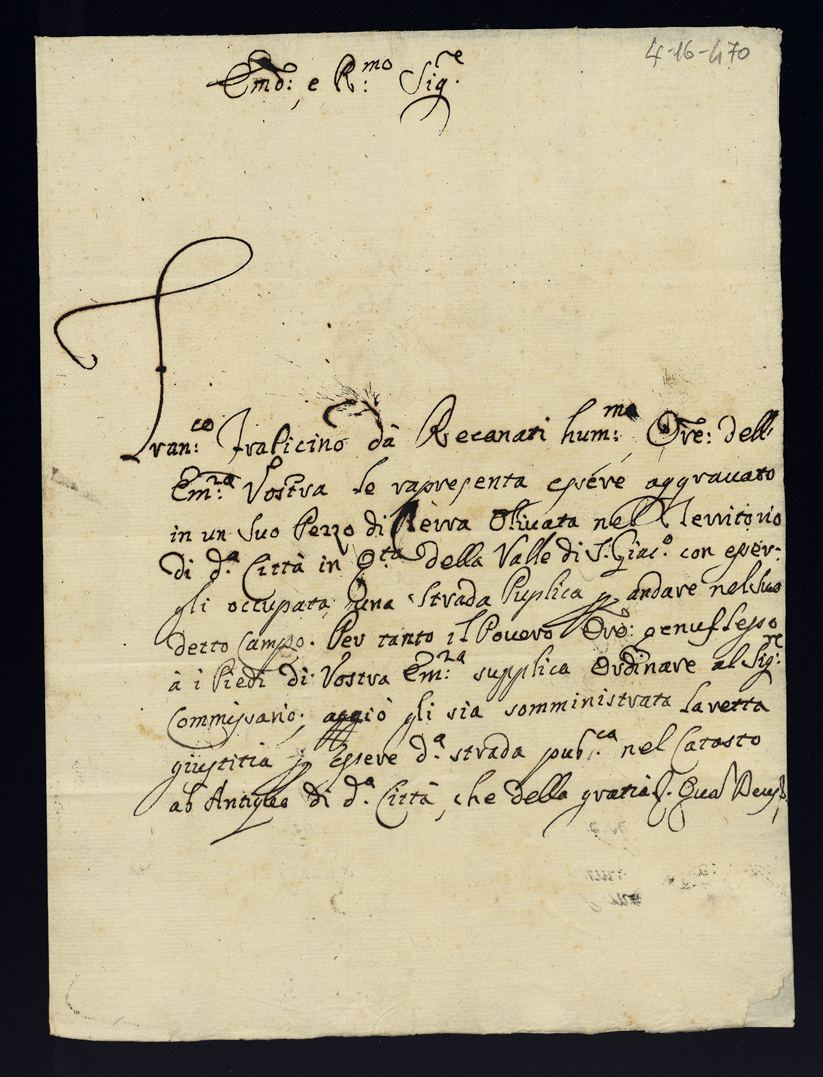 4-16-470
Em͞o: e R:mo Sig.re
Fran:co Frapicino dà Recanati hum:mo Ore: dell'
Em:za Vostra le rapresenta essere aggravato
in un suo Pezzo di Terra Olivata nel Territorio
di d.a Città in C.ta della Valle di S. Giac.o con esser-
gli occupata una strada Puplica p andare nel suo
detto Campo. Per tanto il Povero Ore: genuflesso
à i Piedi di Vostra Em:za supplica Ordinare al Sig:re
Commissario, acciò gli sia somministrata la retta
giustitia p essere d.a strada pub:ca nel Catasto
ab Antiquo di d.a Città, che della gratia &. Quas Deus &.